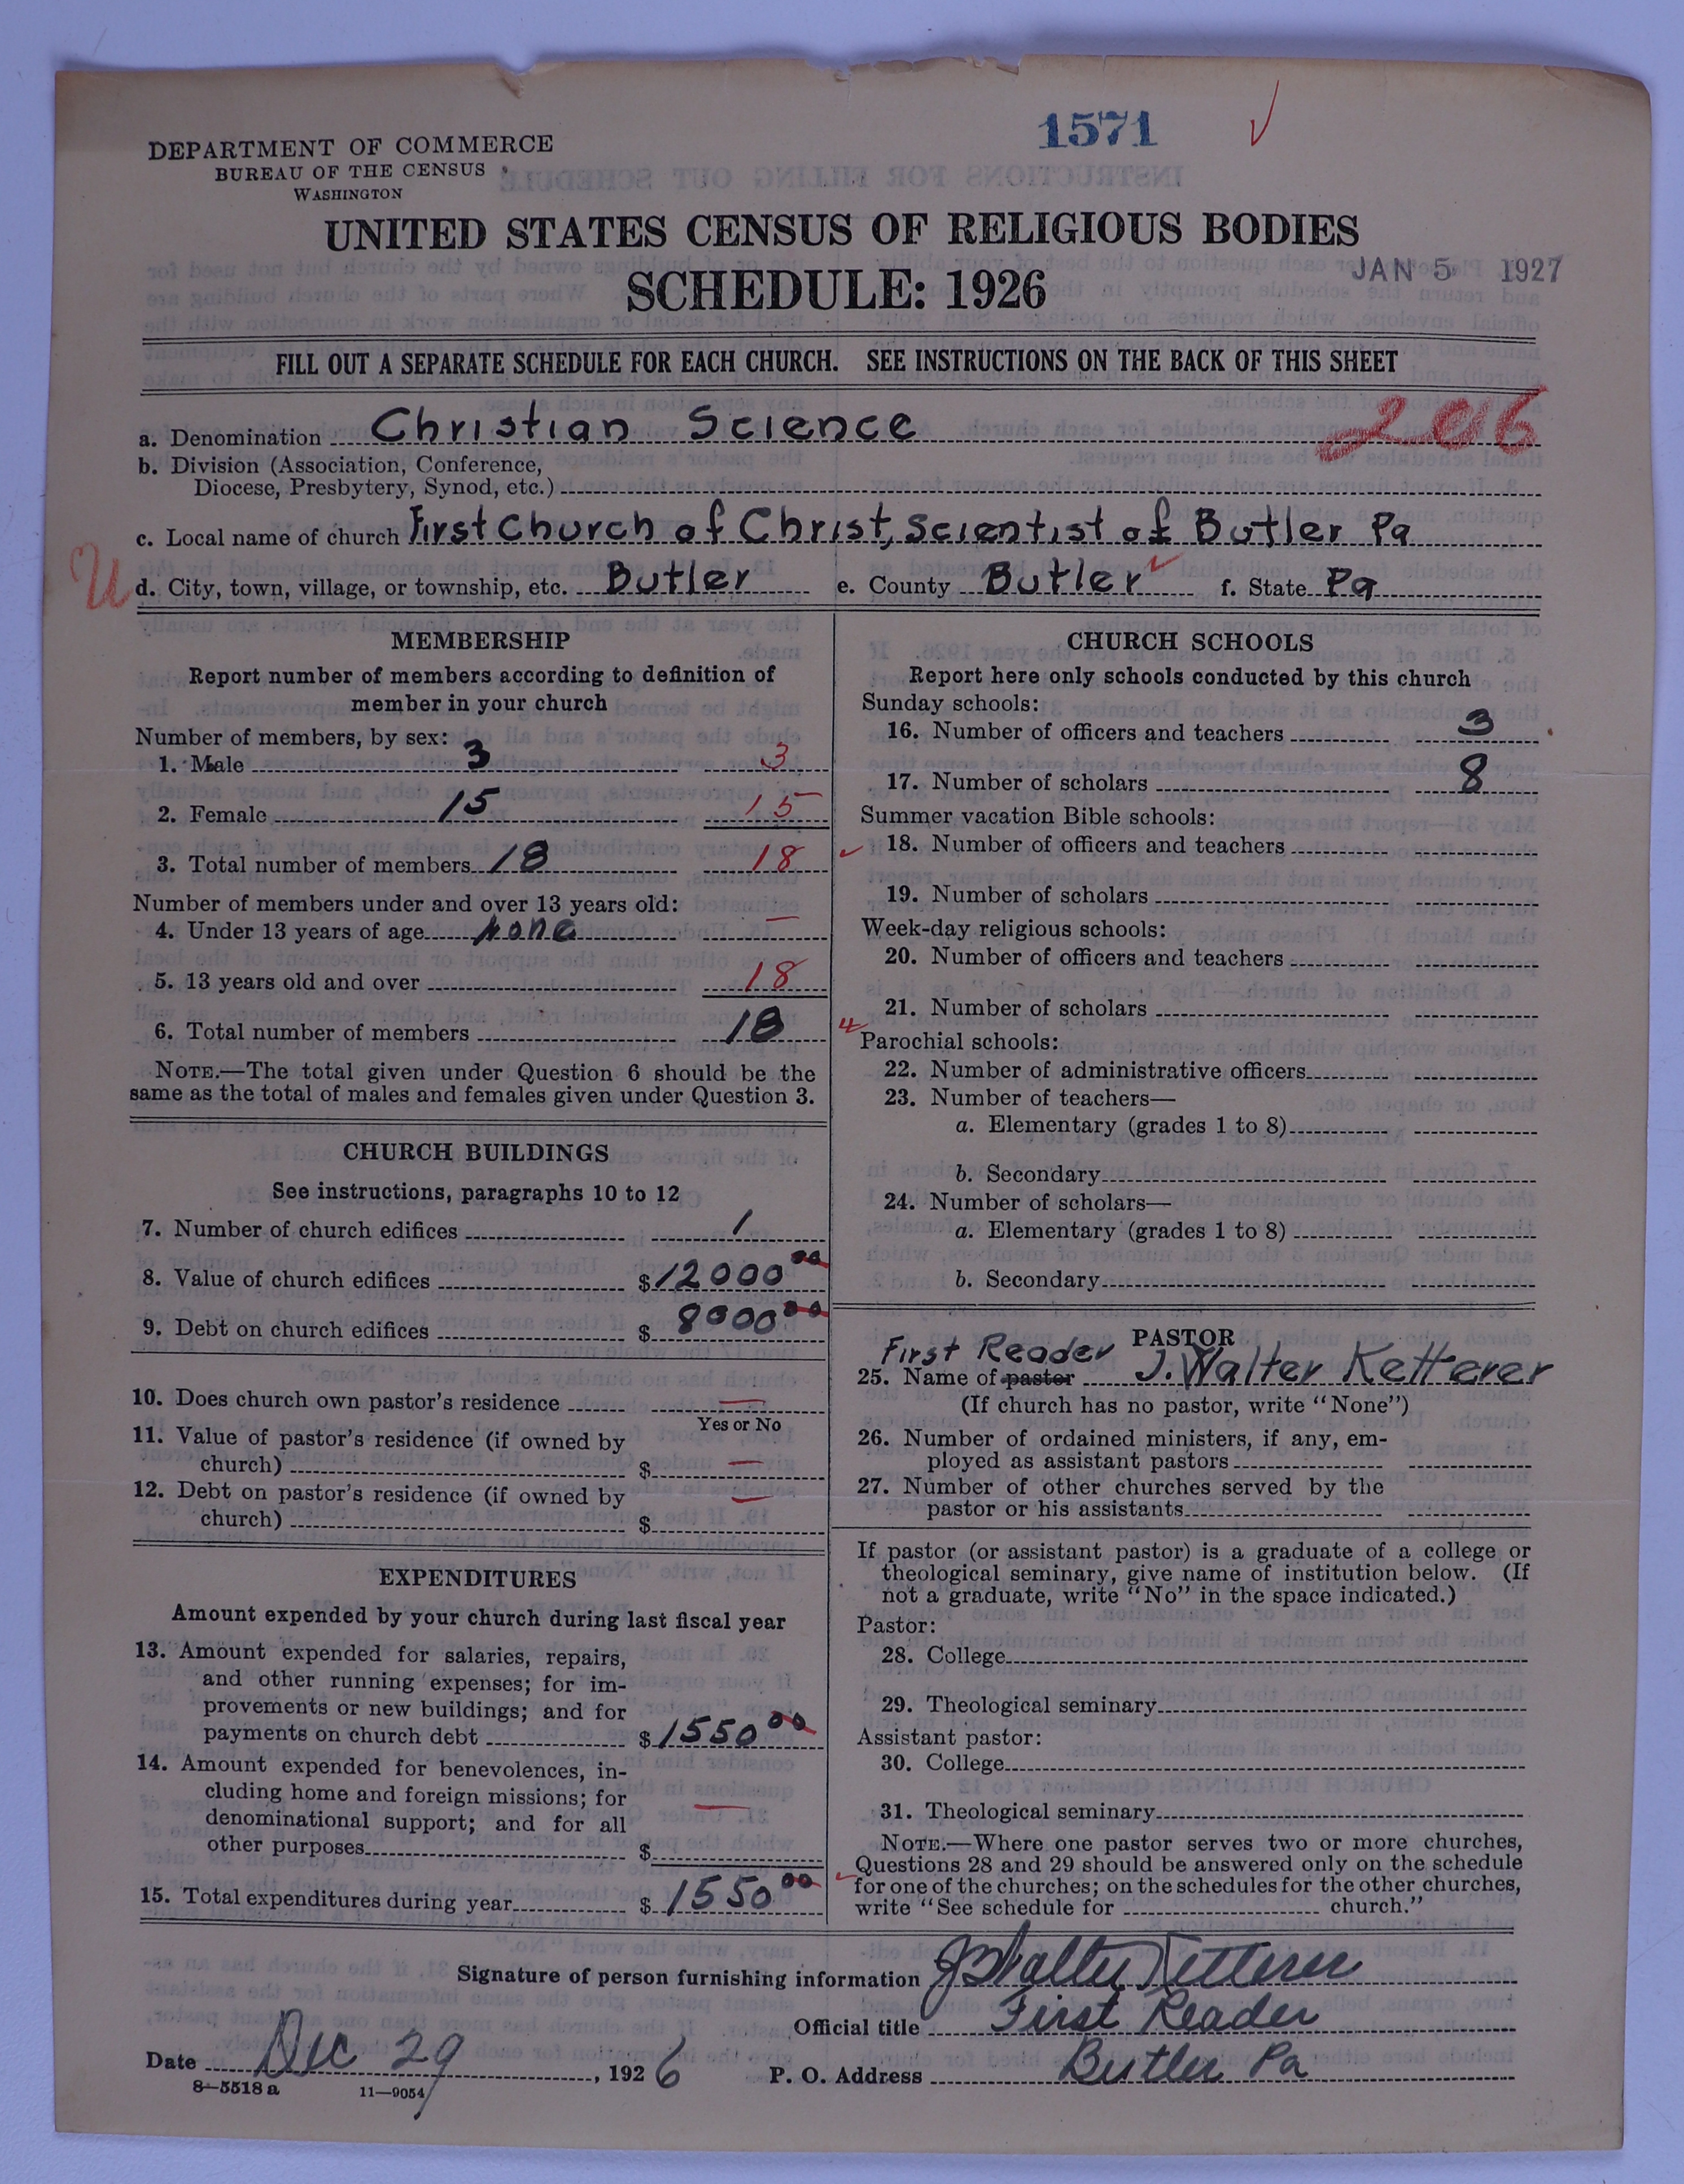 1571
DEPARTMENT OF COMMERCE
BUREAU OF THE CENSUS
WASHINGTON
UNITED STATES CENSUS OF RELIGIOUS BODIES
SCHEDULE: 1926
JAN 5 1927
FILL OUT A SEPARATE SCHEDULE FOR EACH CHURCH. SEE INSTRUCTIONS ON THE BACK OF THIS SHEET
a. Denomination Christian Science 206
b. Division (Association, Conference,
Diocese, Presbytery, Synod, etc.)
c. Local name of church First Church of Christ, Scientist of Butler Pa
U
d. City, town, village, or township, etc. Butler e. County Butler f. State Pa
MEMBERSHIP
Report number of members according to definition of
member in your church
Number of members, by sex:
1. Male 3 3
2. Female 15 15
3. Total number of members 18 18
Number of members under and over 13 years old:
4. Under 13 years of age None —
5. 13 years old and over 18
6. Total number of members 18
NOTE.—The total given under Question 6 should be the
same as the total of males and females given under Question 3.
CHURCH BUILDINGS
See instructions, paragraphs 10 to 12
7. Number of church edifices 1
8. Value of church edifices $12000 00
9. Debt on church edifices $ 8000 00
10. Does church own pastor's residence —
Yes or No
11. Value of pastor's residence (if owned by
church) $ —
12. Debt on pastor's residence (if owned by
church) $ —
EXPENDITURES
Amount expended by your church during last fiscal year
13. Amount expended for salaries, repairs,
and other running expenses; for im-
provements or new buildings; and for
payments on church debt $1550 00
14. Amount expended for benevolences, in-
cluding home and foreign missions; for
denominational support; and for all
other purposes $ —
15. Total expenditures during year $1550 00
CHURCH SCHOOLS
Report here only schools conducted by this church
Sunday schools:
16. Number of officers and teachers 3
17. Number of scholars 8
Summer vacation Bible schools:
18. Number of officers and teachers
19. Number of scholars
Week-day religious schools:
20. Number of officers and teachers
21. Number of scholars
Parochial schools:
22. Number of administrative officers
23. Number of teachers—
a. Elementary (grades 1 to 8)
b. Secondary
24. Number of scholars—
a. Elementary (grades 1 to 8)
b. Secondary
PASTOR
First Reader
25. Name of pastor J. Walter Ketterer
(If church has no pastor, write "None")
26. Number of ordained ministers, if any, em-
ployed as assistant pastors
27. Number of other churches served by the
pastor or his assistants
If pastor (or assistant pastor) is a graduate of a college or
theological seminary, give name of institution below. (If
not a graduate, write "No" in the space indicated.)
Pastor:
28. College
29. Theological seminary
Assistant pastor:
30. College
31. Theological seminary
NOTE.—Where one pastor serves two or more churches,
Questions 28 and 29 should be answered only on the schedule
for one of the churches; on the schedules for the other churches,
write "See schedule for church."
Signature of person furnishing information J Walter Ketterer
Official title First Reader
Date Dec 29, 1926 P. O. Address Butler Pa
8—5518 a 11—9054